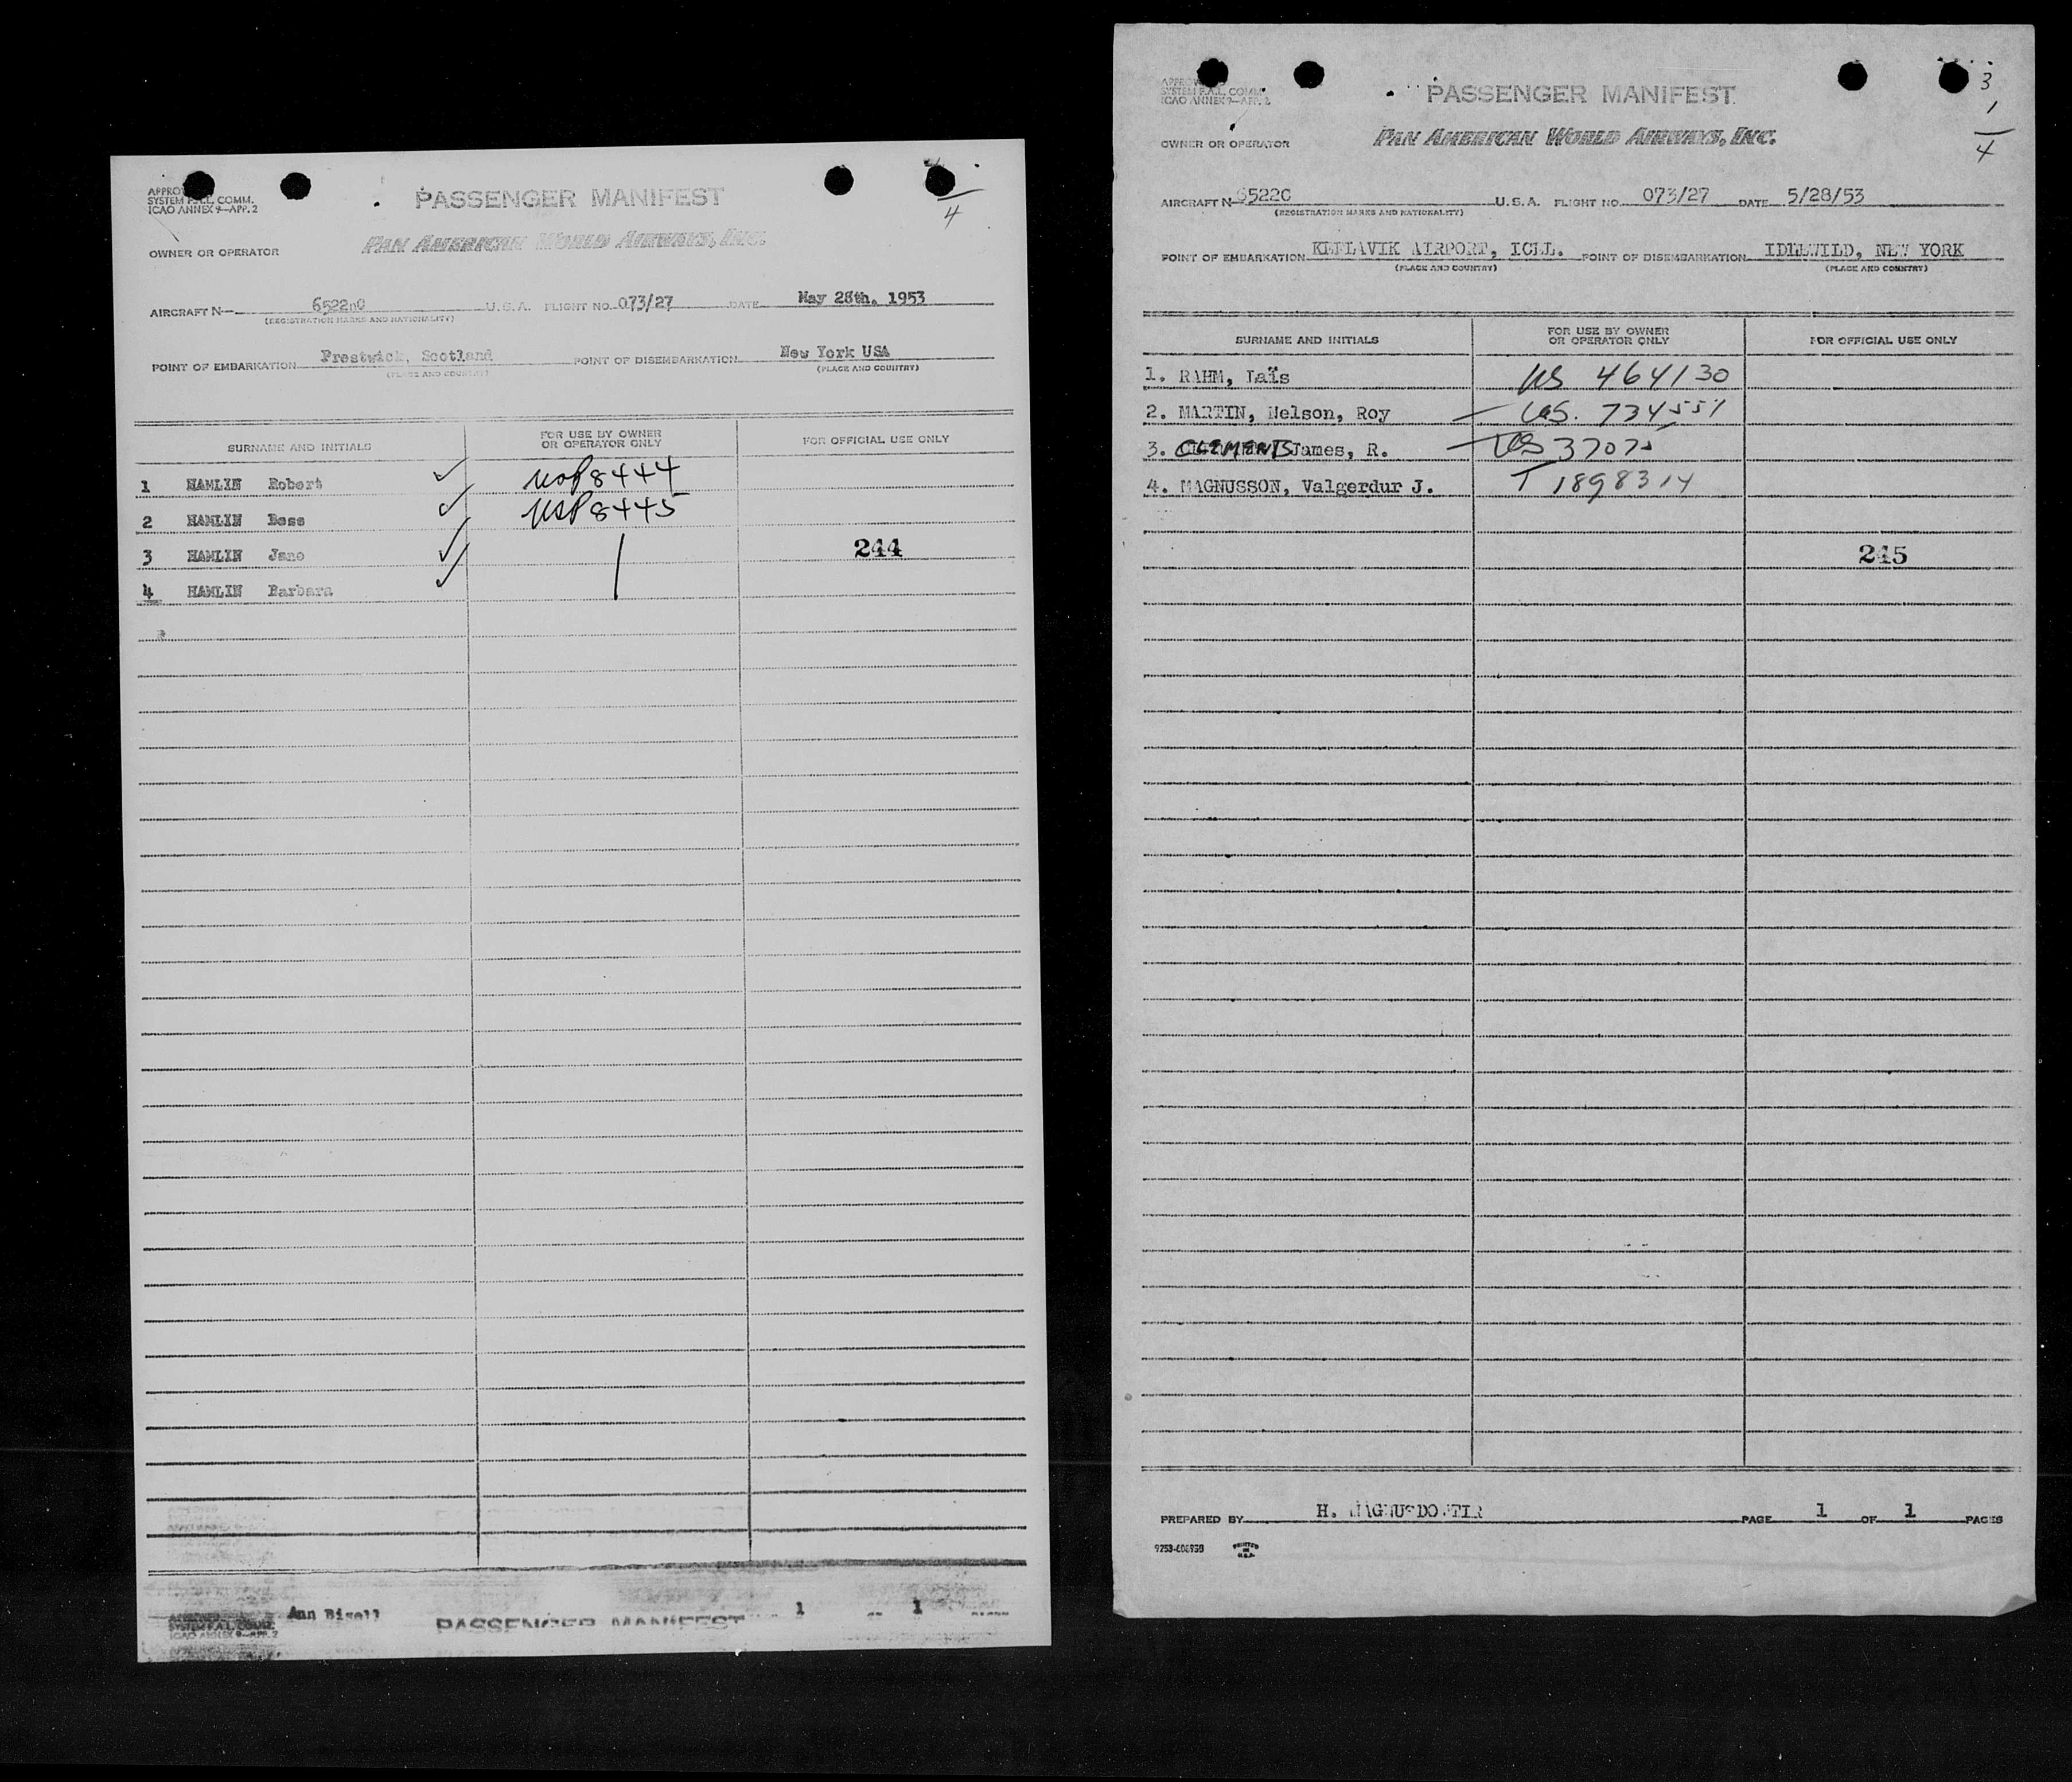 PASSENGER MANIFEST
SYSTEM F.A.L. COMM.
ICAO ANNEX 9—APP. 2
4
OWNER OR OPERATOR PAN AMERICAN WORLD AIRWAYS, INC.
AIRCRAFT N— U.S.A. FLIGHT NO. 073/27 DATE May 28th. 1953
(REGISTRATION MARKS AND NATIONALITY)
POINT OF EMBARKATION Prestwick, Scotland POINT OF DISEMBARKATION New York USA
(PLACE AND COUNTRY) (PLACE AND COUNTRY)
SURNAME AND INITIALS FOR USE BY OWNER OR OPERATOR ONLY FOR OFFICIAL USE ONLY
1 HAMLIN Robert ✓ 8444
2 HAMLIN Bess ✓ USP 8445
3 HAMLIN Jane ✓ 244
4 HAMLIN Barbara ✓
Ann PASSENGER MANIFEST 1 1
ICAO ANNEX 9—APP. 2
PASSENGER MANIFEST
SYSTEM F.A.L. COMM.
ICAO ANNEX 9—APP. 2
3
1
4
OWNER OR OPERATOR PAN AMERICAN WORLD AIRWAYS, INC.
AIRCRAFT N 6522C U.S.A. FLIGHT NO. 073/27 DATE 5/28/53
(REGISTRATION MARKS AND NATIONALITY)
POINT OF EMBARKATION KEFLAVIK AIRPORT, ICEL. POINT OF DISEMBARKATION IDLEWILD, NEW YORK
(PLACE AND COUNTRY) (PLACE AND COUNTRY)
SURNAME AND INITIALS FOR USE BY OWNER OR OPERATOR ONLY FOR OFFICIAL USE ONLY
1. RAHM, Laïs US 464130
2. MARTIN, Nelson, Roy US. 734551
3. CLEMENTS James, R. US 37075
4. MAGNUSSON, Valgerdur J. T 1898314
245
PREPARED BY H. MAGNUSDOTTIR PAGE 1 OF 1 PAGES
PRINTED IN U.S.A.